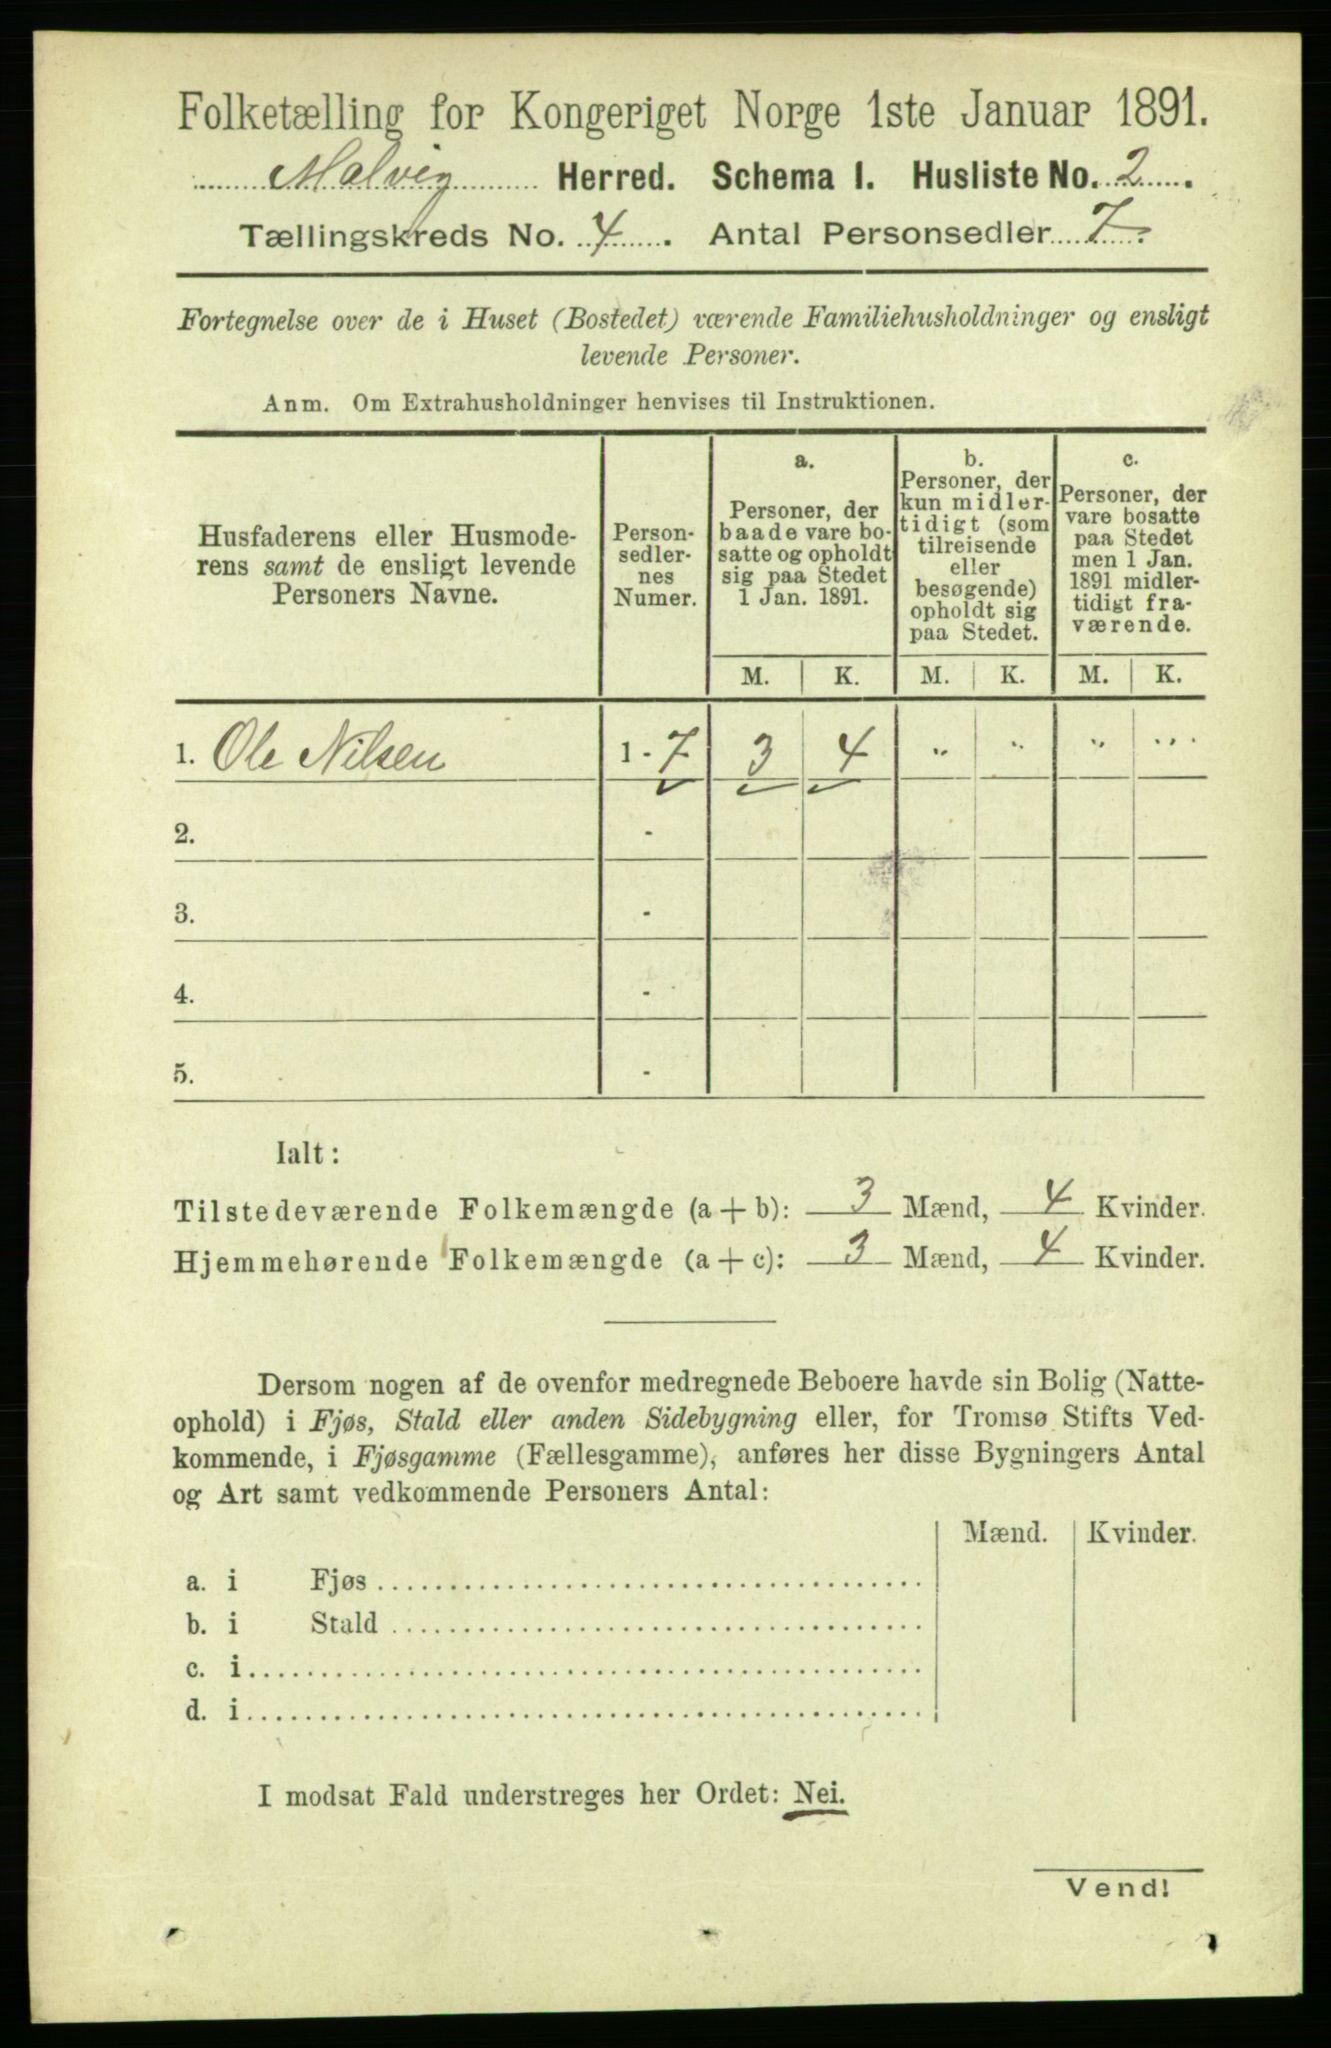 Folketælling for Kongeriget Norge 1ste Januar 1891.
Malvig Herred. Schema I. Husliste No. 2.
Tællingskreds No. 4. Antal Personsedler 7.
Fortegnelse over de i Huset (Bostedet) værende Familiehusholdninger og ensligt
levende Personer.
Anm. Om Extrahusholdninger henvises til Instruktionen.
Husfaderens eller Husmode-
rens samt de ensligt levende
Personers Navne.
Person-
sedler-
nes
Numer.
a.
Personer, der
baade vare bo-
satte og opholdt
sig paa Stedet
1 Jan. 1891.
b.
Personer, der
kun midler-
tidigt (som
tilreisende
eller
besøgende)
opholdt sig
paa Stedet.
c.
Personer, der
vare bosatte
paa Stedet
men 1 Jan.
1891 midler-
tidigt fra-
værende.
M. K. M. K. M. K.
1. Ole Nilsen 1 - 7 3 4 " " " "
2. -
3. -
4. -
5. -
Ialt:
Tilstedeværende Folkemængde (a + b): 3 Mænd, 4 Kvinder.
Hjemmehørende Folkemængde (a + c): 3 Mænd, 4 Kvinder.
Dersom nogen af de ovenfor medregnede Beboere havde sin Bolig (Natte-
ophold) i Fjøs, Stald eller anden Sidebygning eller, for Tromsø Stifts Ved-
kommende, i Fjøsgamme (Fællesgamme), anføres her disse Bygningers Antal
og Art samt vedkommende Personers Antal:
Mænd. Kvinder.
a. i Fjøs
b. i Stald
c. i
d. i
I modsat Fald understreges her Ordet: Nei.
Vend!